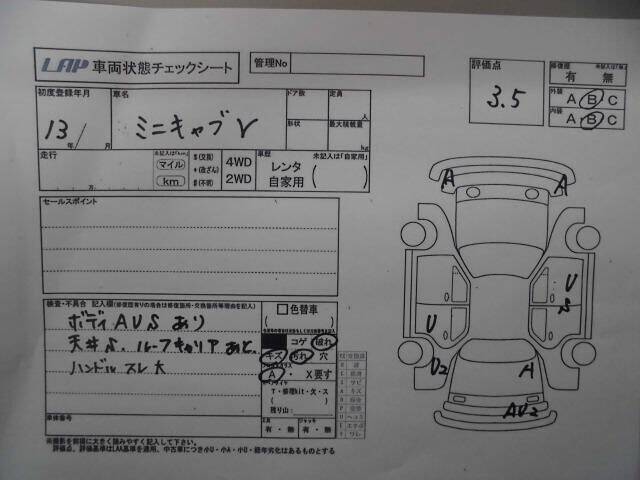 LAP 車両状態チェックシート
管理No
評価点
3.5
修復歴
有 無
外装
A B C
内装
A B C
初度登録年月
13 年 月
車名
ミニキャブV
ドア数
定員
人
形状
最大積載量
kg
走行
マイル
km
$(交換)
*(改ざん)
#(不明)
4WD
2WD
車歴
未記入は「自家用」
レンタ
自家用
( )
セールスポイント
検査・不具合 記入欄
ボディAUSあり
天井S. ルーフキャリアあと.
ハンドルスレ大
車体番号
色替車
コゲ 破れ
キズ 汚れ 穴
A ・ X要す
T・修理kit・欠・ス
残り山:
有・無
ジャッキ
有・無
A
A
U
S
U
U2
A
AU2
※撮影を前提に大きく読みやすく記入して下さい。
評価点、評価基準はLAA基準を適用、中古車につき小U・小A・小D・経年劣化はあるものとする